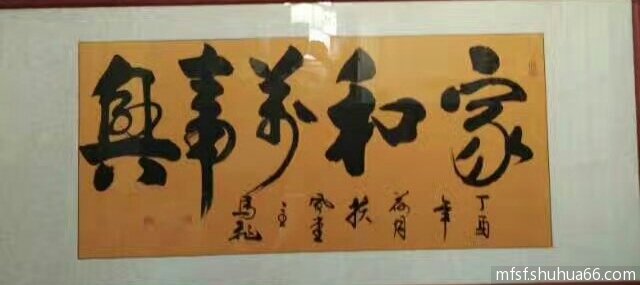 家和萬事興
丁酉年荷月扶風堂主馬
mfsf.shuhua66.com